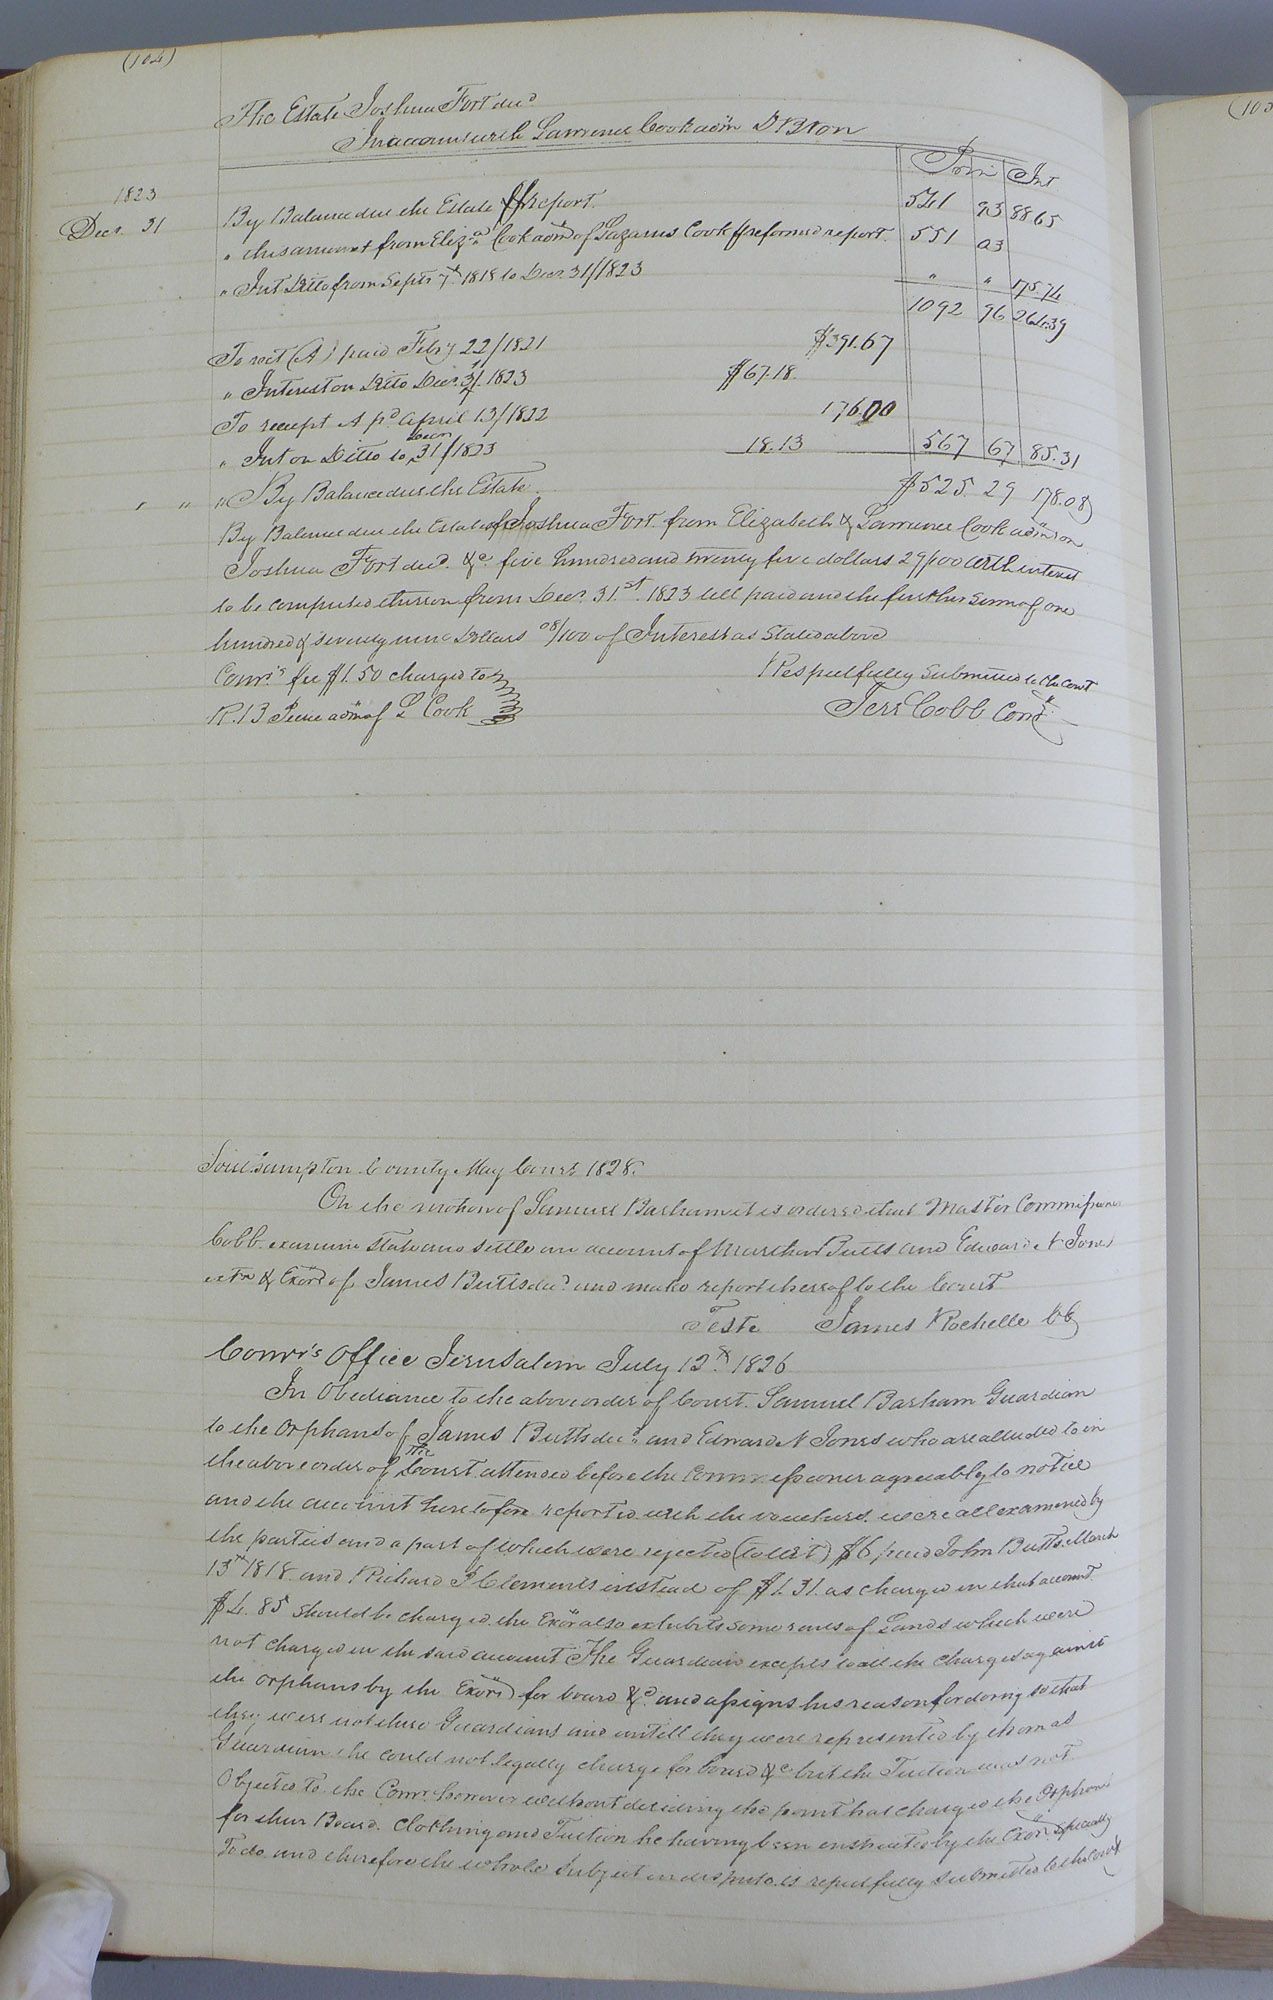 (104)
The Estate Joshua Fort decd
In account with Lawrence Cook admr DBNon
Prin Int
1823
Decr. 31 By Balance due the Estate pr report. 541 93 88 65
" this amount from Eliza. Cook admx of Lazarus Cook pr reformed report. 551 03
" Int Ditto from Septr 7th 1818 to Decr. 31/1823 " " 175.74
1092 96 264.39
To rect (A) paid Feby 22/1821 $391.67
" Interest on Ditto Decr. 31. 1823 $67.18.
To receipt A pd April 13/1822 176.00
" Int on Ditto to Decr 31/1823 18.13 567 67 85.31
" " " By Balance due the Estate. $525. 29 178.08
By Balance due the Estate of Joshua Fort from Elizabeth & Lawrence Cook admr on
Joshua Fort decd. &c. five hundred and twenty five dollars 29/100 with interest
to be computed thereon from Decr. 31st. 1823 till paid and the further Sum of one
hundred & seventy nine Dollars 08/100 of Interest as Stated above
Comrs fee $1.50 charged to
R.B admr of L Cook
Respectfully Submitted to the Court
Jers Cobb Comr
Southampton County May Court 1828.
On the motion of Samuel Barham it is ordered that Master Commissioner
Cobb. examine State and settle an account of Butts and Edward N Jones
& Exors of James Butts decd. and make report thereof to the Court
Teste James Rochelle CC
Comrs Office Jerusalem July 12th. 1826
In Obediance to the above order of Court. Samuel Barham Guardian
to the Orphans of James Butts decd. and Edward N Jones who are alluded to in
the above order of the Court attended before the Commissioner agreeably to notice
and the account heretofore reported with the vouchers were all examined by
the parties and a part of which were rejected (to wit) $6 paid John Butts. March
13th 1818 and Richard P Clements instead of $1.31. as charged in that account
$4.85 should be charged. the Exor also exhibits some rents of Lands which were
not charged in the said account The Guardian excepts to all the charges against
the orphans by the Exors for board &c and assigns his reason for doing so that
they were not there Guardians and untill they were represented by them as
Guardian he could not legally charge for board &c but the Tuition was not
Objected to. the Comr. however without deciding the point has charged the Orphans
for their Board. Clothing and Tuition he having been instructed by the Exor. specially
To do. and therefore the whole Subject in dispute. is respectfully submitted to the Court
(105